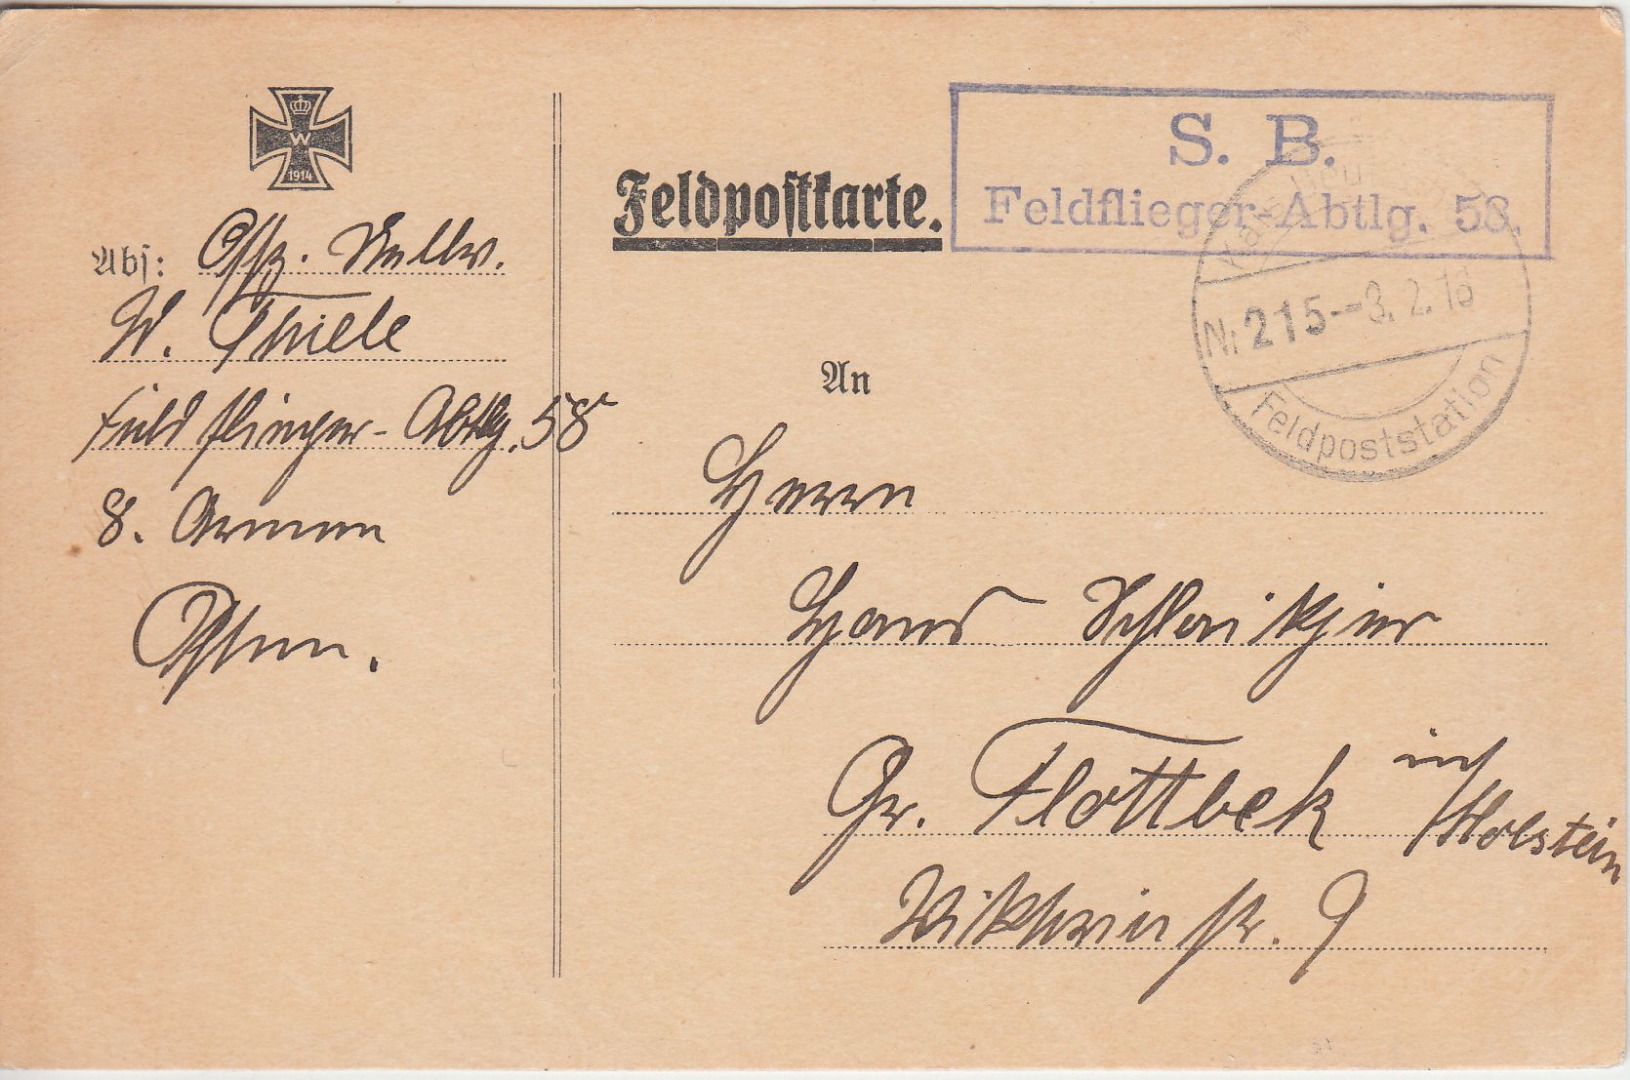 W
1914
Abs: Offz. Stellv.
W. Thiele
Feldflieger-Abtlg. 58
8. Armee
Osten.
Feldpostkarte.
S. B.
Feldflieger-Abtlg. 58.
Nr 215 -- 3. 2. 16
Feldpoststation
An
Herrn
Hans Schlaikjer
Gr. Flottbek in
Holstein
str. 9